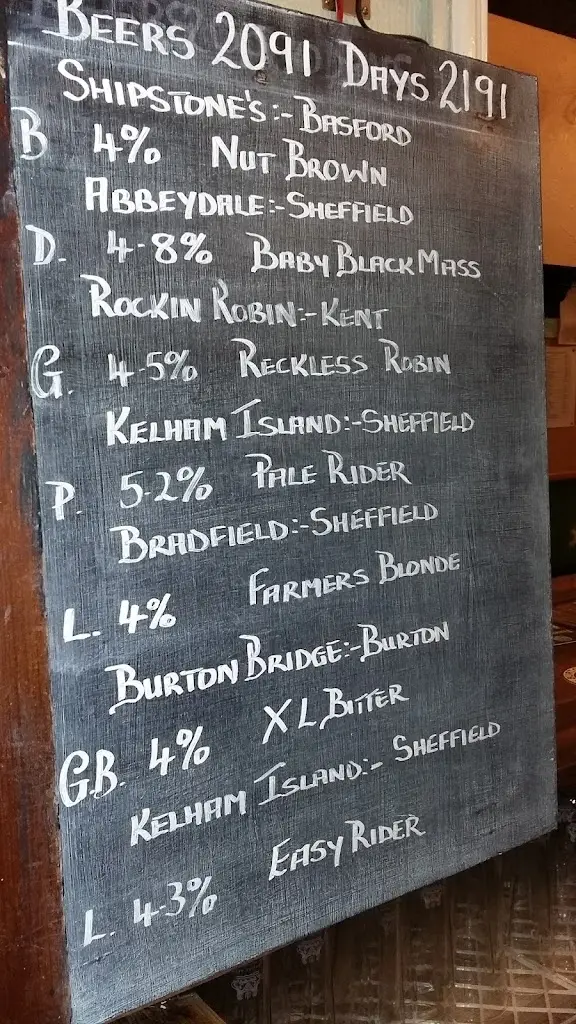 BEERS 2091 DAYS 2191
SHIPSTONE'S:- BASFORD
B 4% NUT BROWN
ABBEYDALE:-SHEFFIELD
D. 4-8% BABY BLACK MASS
ROCKIN ROBIN:-KENT
G. 4-5% RECKLESS ROBIN
KELHAM ISLAND:-SHEFFIELD
P. 5-2% PALE RIDER
BRADFIELD:-SHEFFIELD
L. 4% FARMERS BLONDE
BURTON BRIDGE:-BURTON
G.B. 4% XL BITTER
KELHAM ISLAND:- SHEFFIELD
L. 4-3% EASY RIDER